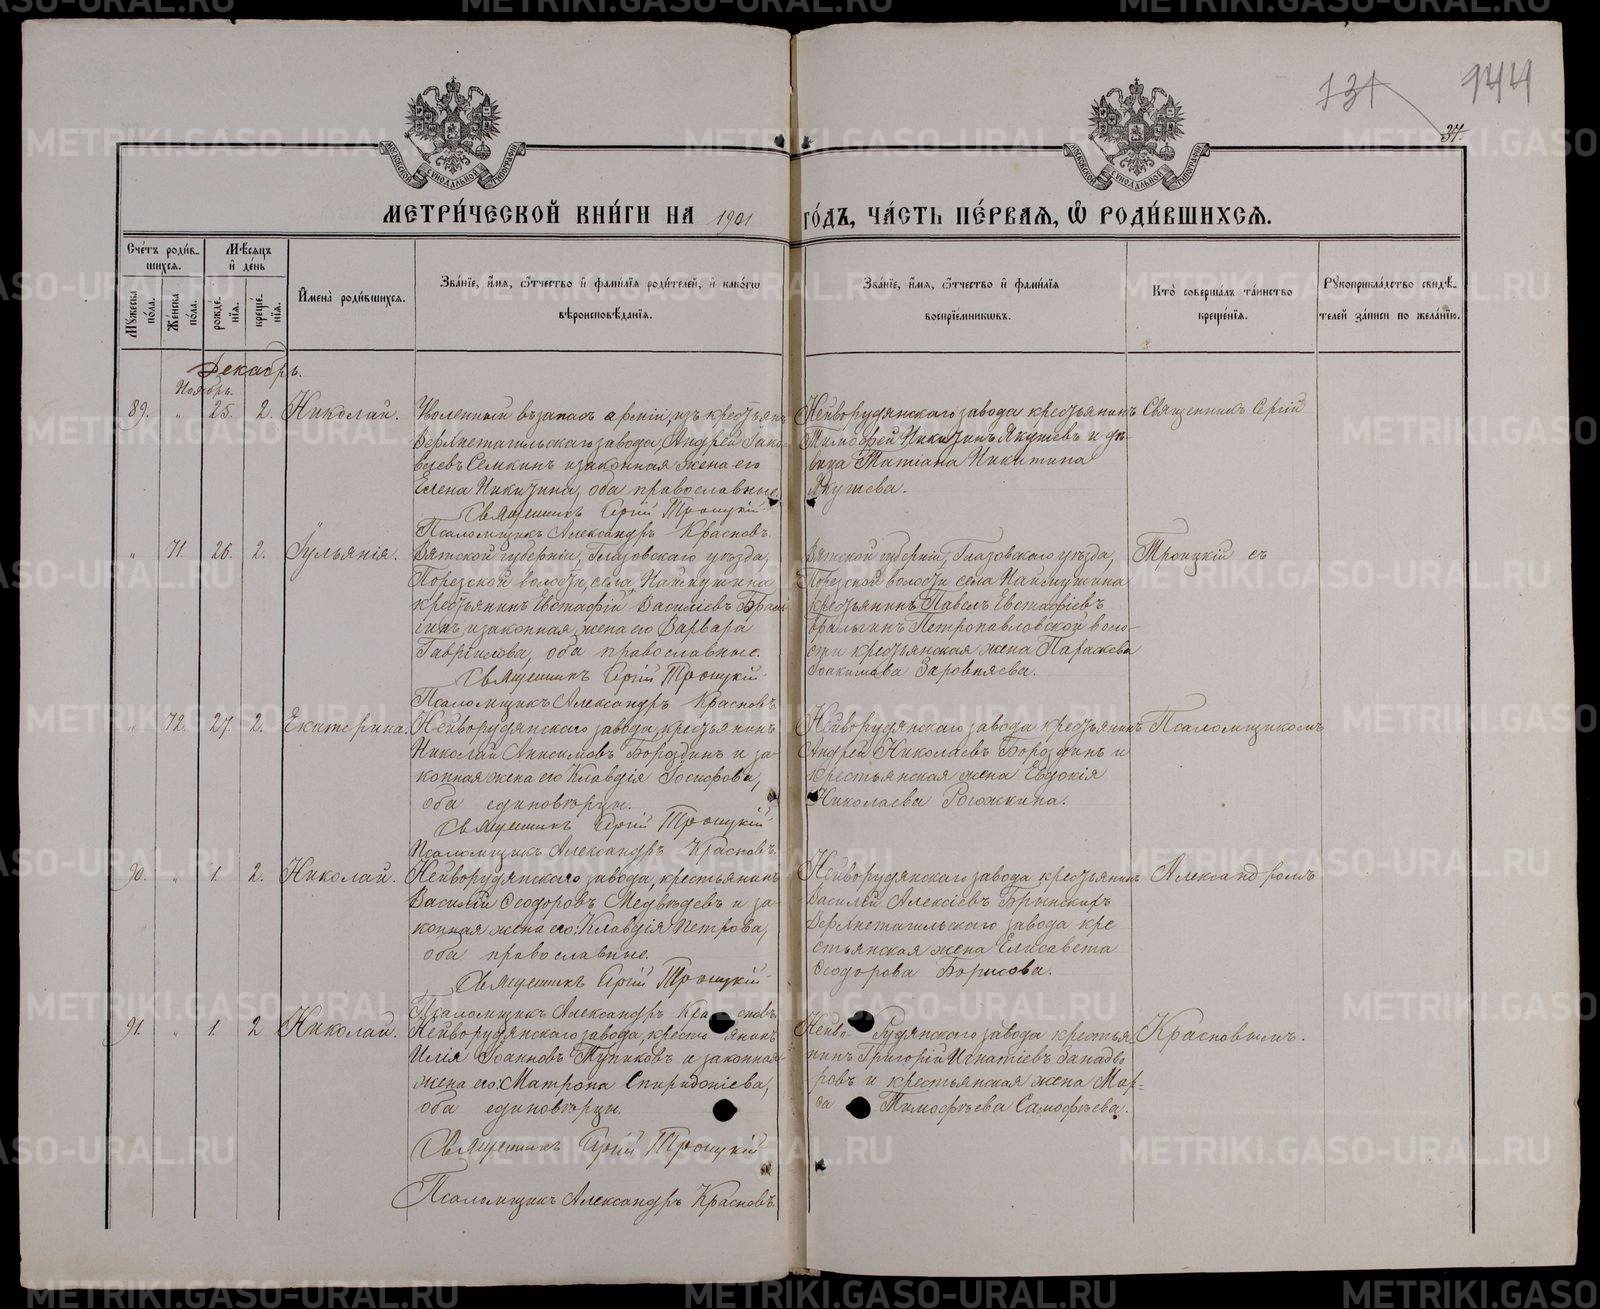 131
944
37.
МОСКОВСКОЙ СѴНОДАЛЬНОЙ ТИПОГРАФІИ
МОСКОВСКОЙ СѴНОДАЛЬНОЙ ТИПОГРАФІИ
МЕТРИ́ЧЕСКОЙ КНИ́ГИ НА 1901 ГО́ДЪ, ЧА́СТЬ ПЕ́РВАЯ, Ѡ РОДИ́ВШИХСЯ.
Счетъ родившихся.
Мѣсяцъ и день
Мужеска пола.
Женска пола.
рожденія.
крещенія.
Имена родившихся.
Званіе, имя, отчество и фамилія родителей, и какого вѣроисповѣданія.
Званіе, имя, отчество и фамилія воспріемниковъ.
Кто совершалъ таинство крещенія.
Рукоприкладство свидѣтелей записи по желанію.
Декабрь.
Ноябрь.
89. " 25. 2. Николай.
Уволенный въ запасъ арміи, изъ крестьянъ
Верхнетагильскаго завода, Андрей Іако-
влевъ Семкинъ и законная жена его
Елена Никитина, оба православные.
Священникъ Сергій Троицкій
Псаломщикъ Александръ Красновъ.
Нейворудянскаго завода крестьянинъ
Тимофей Никитинъ Якушевъ и дѣ-
вица Татіана Никитина
Якушева.
Священникъ Сергій
" 71. 26. 2. Іульянія.
Вятской губерніи, Глазовскаго уѣзда,
Порезской волости, села
крестьянинъ Евстафій Василіевъ
и законная жена его Варвара
Гавріилова, оба православные.
Священникъ Сергій Троицкій
Псаломщикъ Александръ Красновъ.
Вятской губерніи, Глазовскаго уѣзда,
Порезской волости села
крестьянинъ Павелъ Евстафіевъ
Петропавловской воло-
сти крестьянская жена Параскева
Іоакимова
Троицкій съ
" 72. 27. 2. Екатерина.
Нейворудянскаго завода, крестьянинъ
Николай Анисимовъ Бороздинъ и за-
конная жена его Клавдія
оба единовѣрцы.
Священникъ Сергій Троицкій
Псаломщикъ Александръ Красновъ.
Нейворудянскаго завода крестьянинъ
Андрей Николаевъ Бороздинъ и
крестьянская жена Евдокія
Николаева Рогожкина.
Псаломщикомъ
90. " 1. 2. Николай.
Нейворудянскаго завода, крестьянинъ
Василій Ѳеодоровъ Медвѣдевъ и за-
конная жена его: Клавдія Петрова,
оба православные.
Священникъ Сергій Троицкій
Псаломщикъ Александръ Красновъ
Нейворудянскаго завода крестьянинъ
Василій Алексіевъ Брынскихъ
Верхнетагильскаго завода кре
стьянская жена Елисавета
Ѳеодорова Борисова.
Александромъ
91. " 1. 2 Николай.
Нейворудянскаго завода, крестьянинъ
Илія Іоанновъ Тупиковъ и законная
жена его: Матрона Спиридоніева,
оба единовѣрцы.
Священникъ Сергій Троицкій
Псаломщикъ Александръ Красновъ.
Нейво Рудянскаго завода крестья-
нинъ Григорій Игнатіевъ Западво
ровъ и крестьянская жена Мар-
ѳа Тимофѣева Самофѣева.
Красновымъ.
METRIKI.GASO-URAL.RU